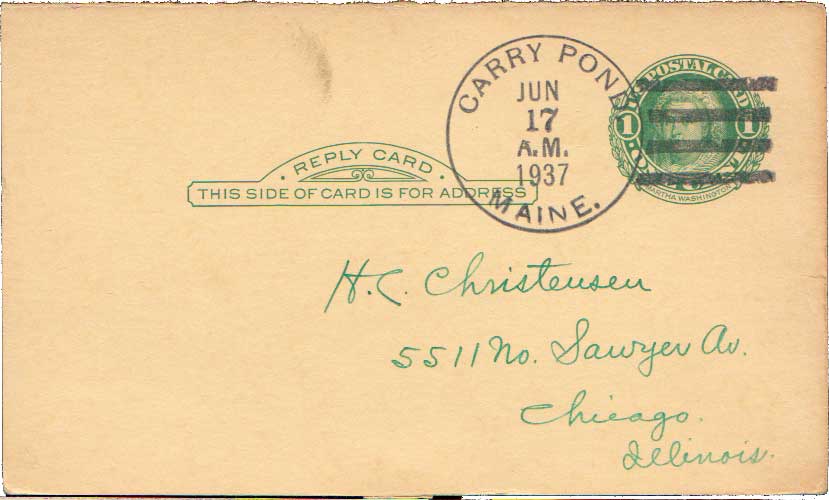 CARRY POND
JUN
17
A.M.
1937
MAINE.
U.S. POSTAL CARD
1 1
MARTHA WASHINGTON
· REPLY CARD ·
THIS SIDE OF CARD IS FOR ADDRESS
H. C. Christensen
5511 No. Sawyer Av.
Chicago.
Illinois.